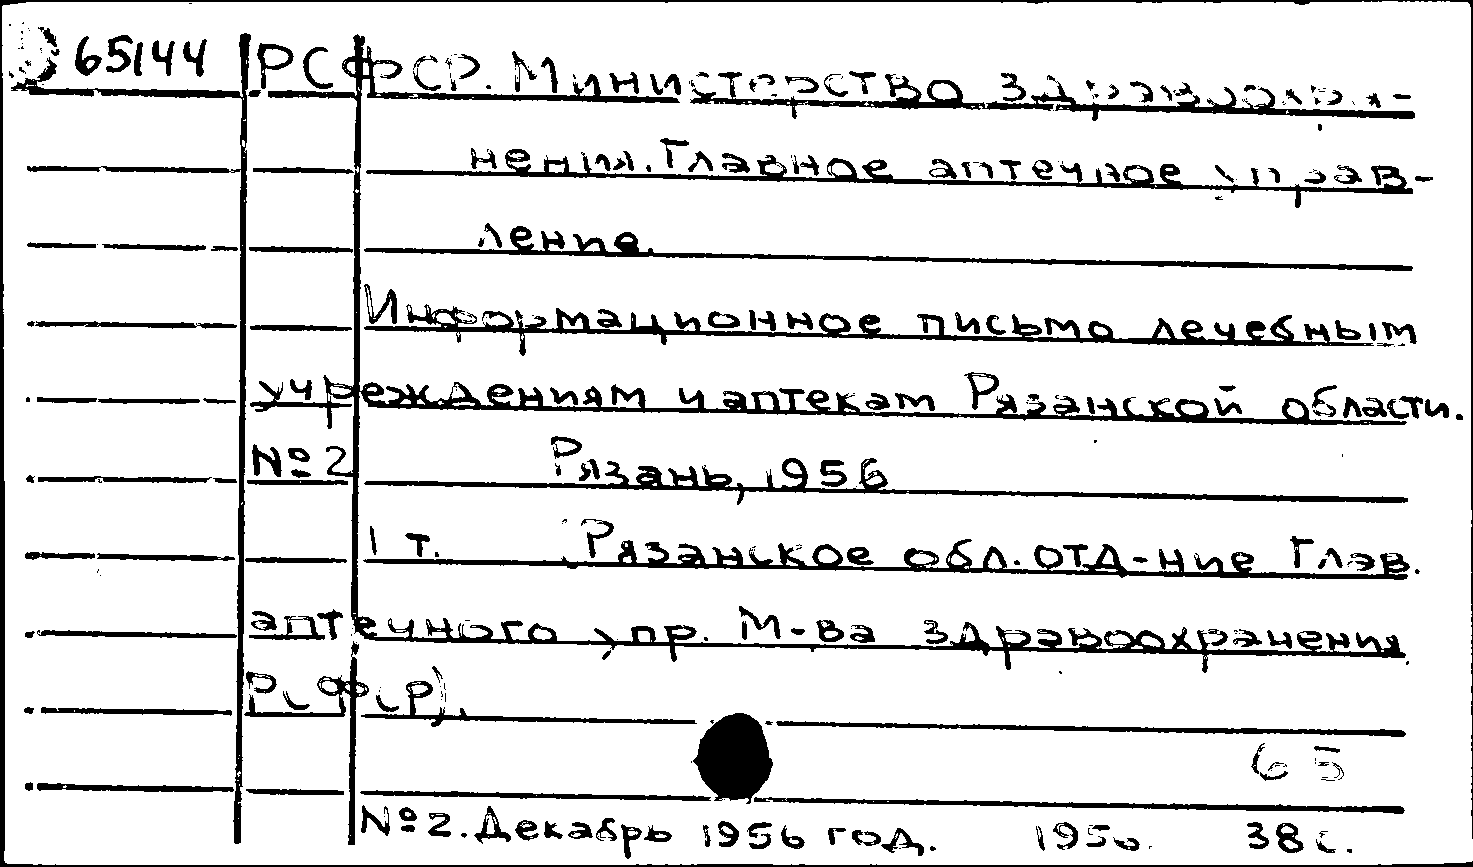 65144 РСФСР. Министерство здравоохра-
нения. Главное аптечное управ-
ление.
Информационное письмо лечебным
учреждениям и аптекам Рязанской области.
№2 Рязань, 1956
1 т. (Рязанское обл. отд-ние Глав.
аптечного упр. М-ва здравоохранения
РСФСР).
65
№2. Декабрь 1956 год. 1956. 38 с.